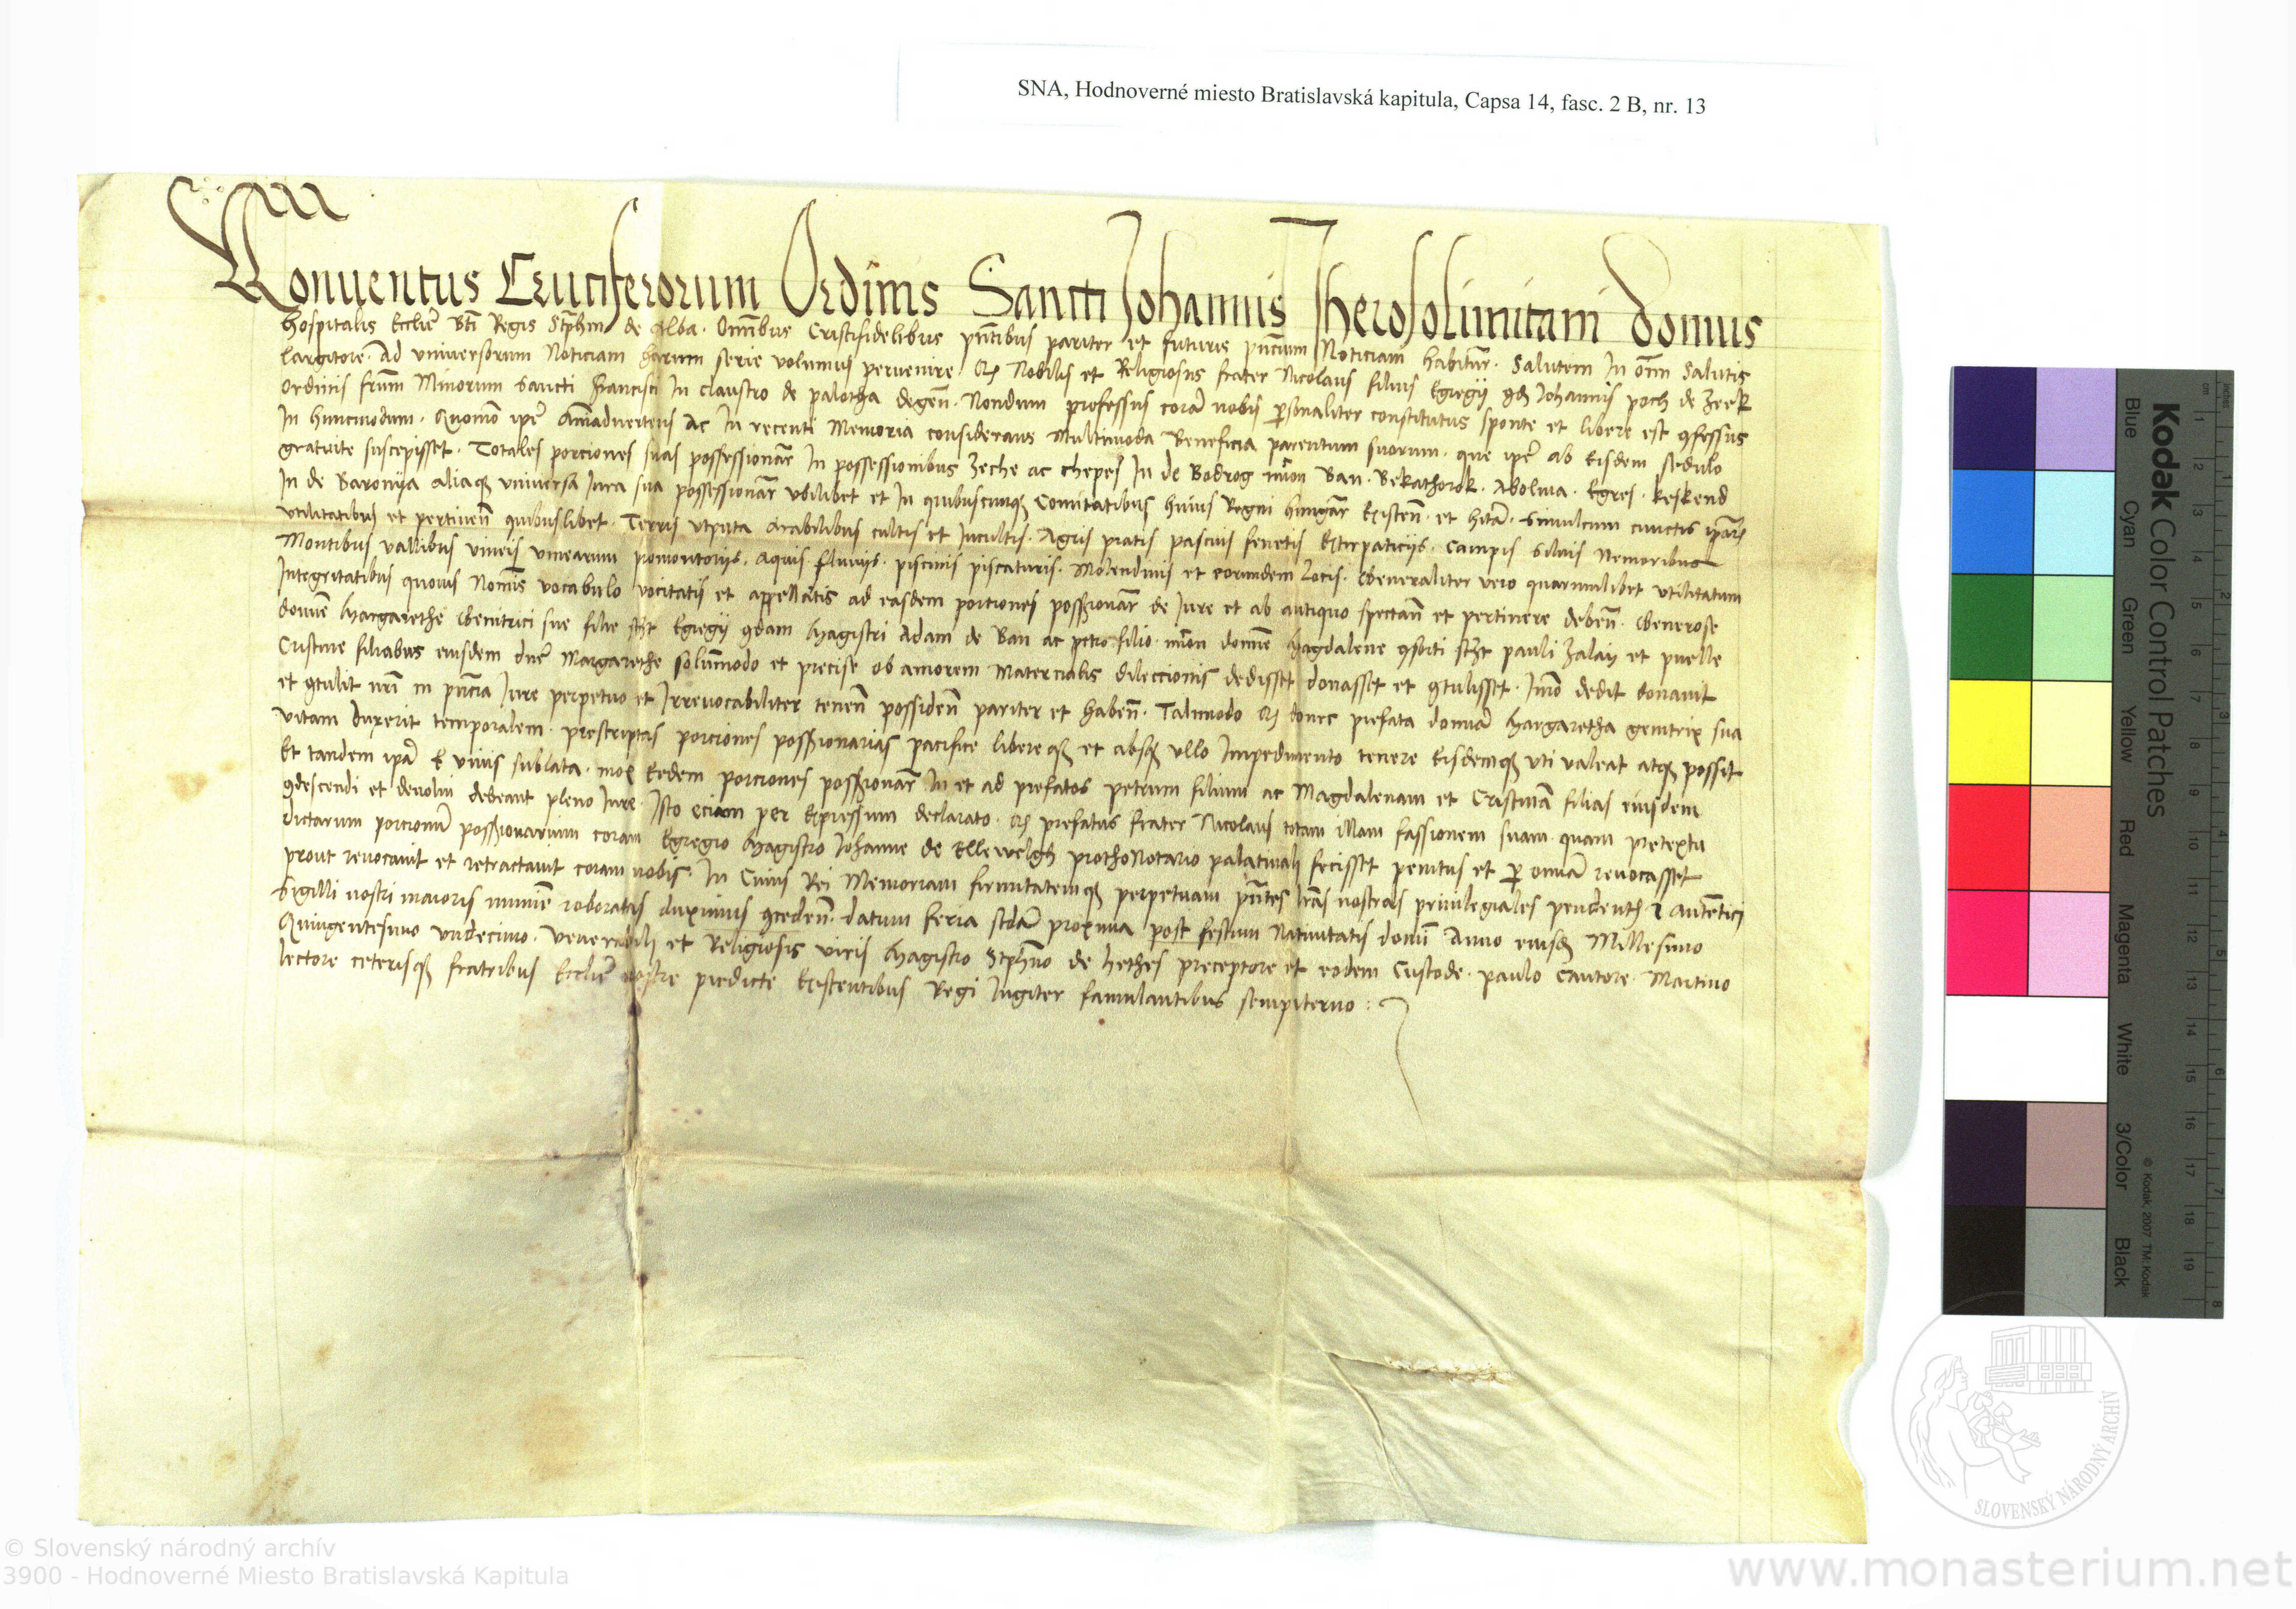 SNA, Hodnoverné miesto Bratislavská kapitula, Capsa 14, fasc. 2 B, nr. 13
Conuentus Cruciferorum Ordinis Sancti Johannis Jherosolimitani domus
hospitalis Ecclie Bti Regis Stphni de Alba. Omnibus Cristifidelibus pntibus pariter et futuris pncium Noticiam habitur. Salutem In omni Salutis
largitore. Ad vniuersorum Noticiam harum serie volumus peruenire. Nobilis et Religiosus frater Nicolaus filius Egregij qd Johannis poch de Zeek
ordinis frum Minorum Sancti Francisci In claustro de palotha degen. Nondum professus coram nobis personaliter constitutus sponte et libere est confessus
In huncmodum. Quomo ipe Animaduertens Ac In recenti Memoria considerans Multimoda Beneficia parentum suorum. que ipe ab Eisdem sedulo
gratuite suscepisset. Totales porciones suas possessionar In possessionibus Zeche ac chepes In de Bodrog nron Ban. Bekathorok. Abolma. Egres. keskend
In de Baronija aliaq vniuersa Jura sua possessionar vbilibet et In quibuscunq Comitatibus huius Regni hungar Existen. et hitas. Simulcum cunctis ipar
vtilitatibus et pertinen quibuslibet. Terris vtputa arabilibus cultis et Incultis. Agris pratis pascuis fenetis Extirpaticijs. Campis Siluis Nemoribus
Montibus vallibus vineis vinearum promontorijs. Aquis fluuijs. piscinis piscaturis. Molendinis et eorundem Locis. Generaliter vero quarumlibet vtilitatum
Integritatibus quouis Nominis vocabulo vocitatis et appellatis ad easdem porciones possionar de Jure et ab antiquo spectan et pertinere deben. Generose
domine Margarethe Genitrici sue filie Egregij qdam Magistri Adam de Ban ac petro filio. domine Magdalene consorti pauli Zalay et puelle
Cristine filiabus eiusdem dne Margarethe solummodo et precise ob amorem Matercialis dileccionis dedisset donasset et contulisset. Imo dedit donauit
et contulit nri in pncia Jure perpetuo et Irreuocabiliter tenen possiden pariter et haben. Talimodo donec prefata domina Margaretha genitrix sua
vitam duxerit temporalem. prescriptas porciones possionarias pacifice libereq et absq vllo Impedimento tenere Eisdemq vti valeat atq possit
Et tandem ipa E viuis sublata. mox Eedem porciones possionar In et ad prefatos petrum filium ac Magdalenam et Cristina filias eiusdem
condescendi et deuolui debeant pleno Jure. Isto eciam per Expressum declarato. prefatus frater Nicolaus totam illam fassionem suam. quam pretextu
dictarum porcionum possionarium coram Egregio Magistro Johanne de Ellewelgh prothonotario palatinali fecisset penitus et per omnia reuocasset
prout reuocauit et retractauit coram nobis. In Cuius Rei Memoriam firmitatemq perpetuam pntes lras nostras priuilegiales pendenti autentici
Sigilli nostri maioris munime roboratas duximus conceden. datum feria scda proxima post festum Natiuitatis domi Anno eiusd Millesimo
Quingentesimo vndecimo. Venerabili et Religiosis viris Magistro Stphno de hethes preceptore et eodem Custode. paulo Cantore. Martino
lectore ceterisq fratribus Ecclie nostre predicte Existentibus Regi Iugiter famulantibus sempiterno
Kodak Color Control Patches
Blue Cyan Green Yellow Red Magenta White 3/Color Black
© Kodak, 2007 TM: Kodak
SLOVENSKÝ NÁRODNÝ ARCHÍV
© Slovenský národný archív
3900 - Hodnoverné Miesto Bratislavská Kapitula
www.monasterium.net